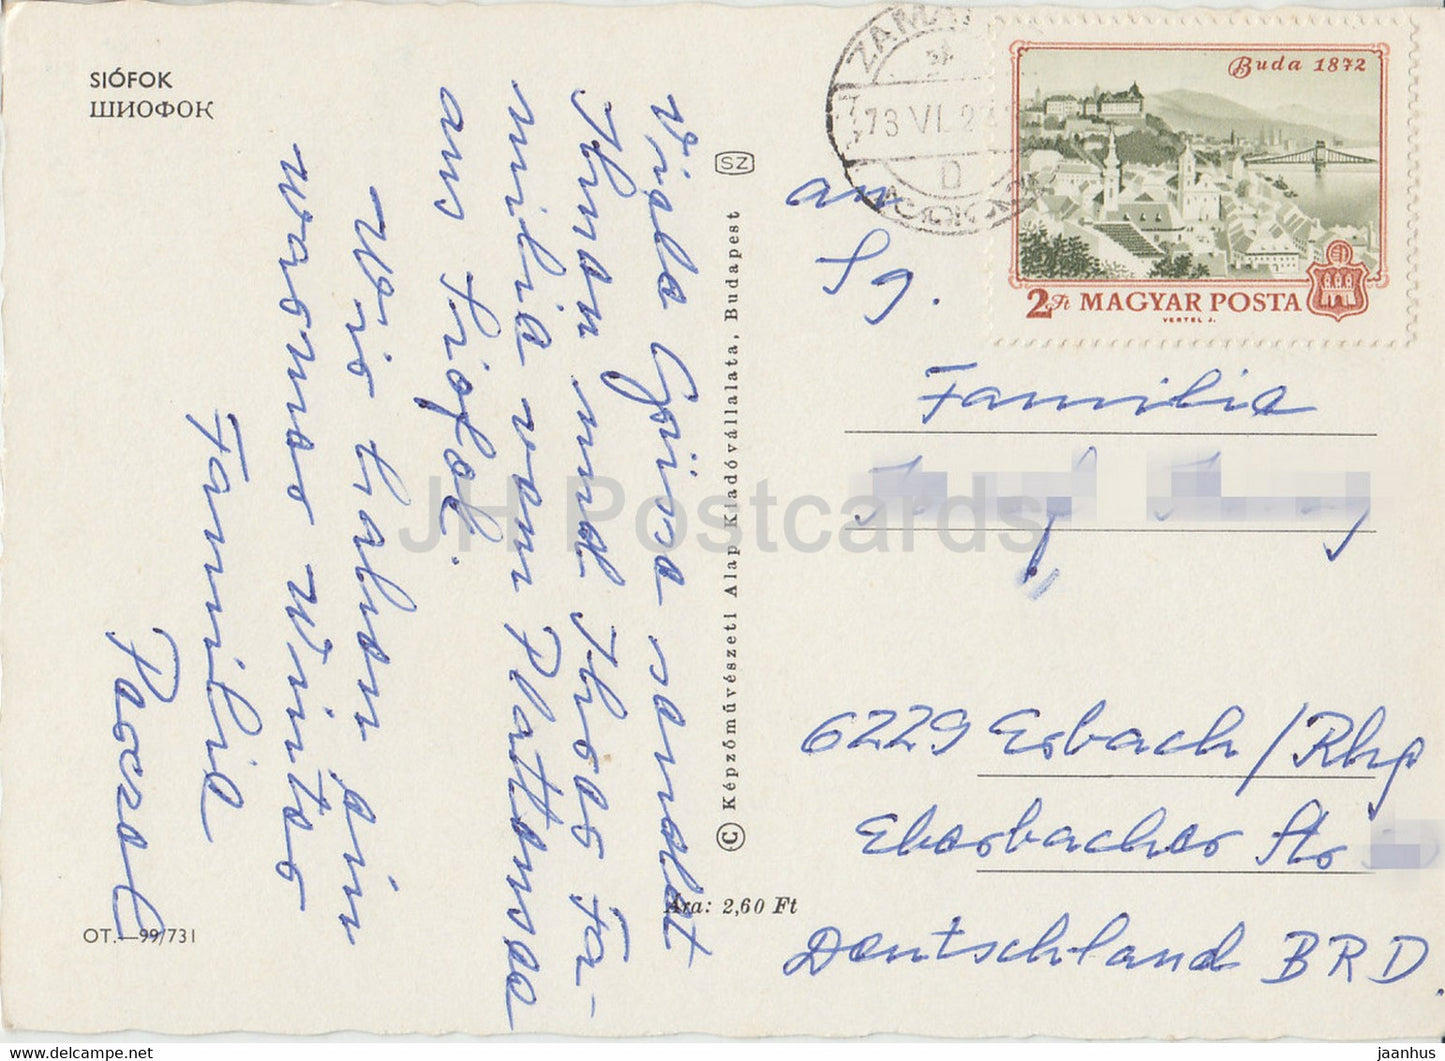 SIÓFOK
ШИОФОК
Viele Grüsse sendet
Ihnen und Ihrer Fa-
milie vom Plattensee
aus Siofok.
Wir haben ein
warmes Winter
Familie
OT.—99/731
SZ
© Képzőművészeti Alap Kiadóvállalata, Budapest
Ára: 2,60 Ft
73 VI. 2
D
Buda 1872
2 Ft MAGYAR POSTA
VERTEL J.
an
Fg.
Familie
6229 Erbach/Rhg
Eberbacher Str
Deutschland BRD.
JH Postcards
jaanhus - delcampe.net